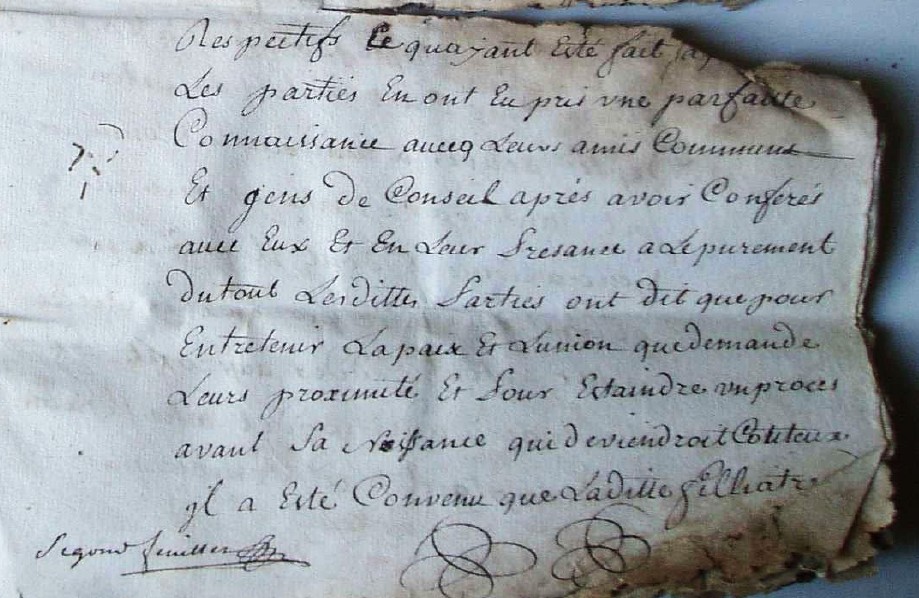 Respectifs Ce quayant Esté fait
Les parties En ont Eu pris vne parfaite
Connaissance auecq Leurs amis Communs
Et gens de Conseil aprés avoir Conferés
auec Eux Et En Leur Presance a Lepurement
du tout Lesdittes Parties ont dit que pour
Entretenir La paix Et Lunion que demande
Leurs proximité Et Pour Estaindre un proces
avant Sa Naissance qui deviendroit Coutteux
yl a Esté Convenu que Laditte filliatre
Segond feuillet